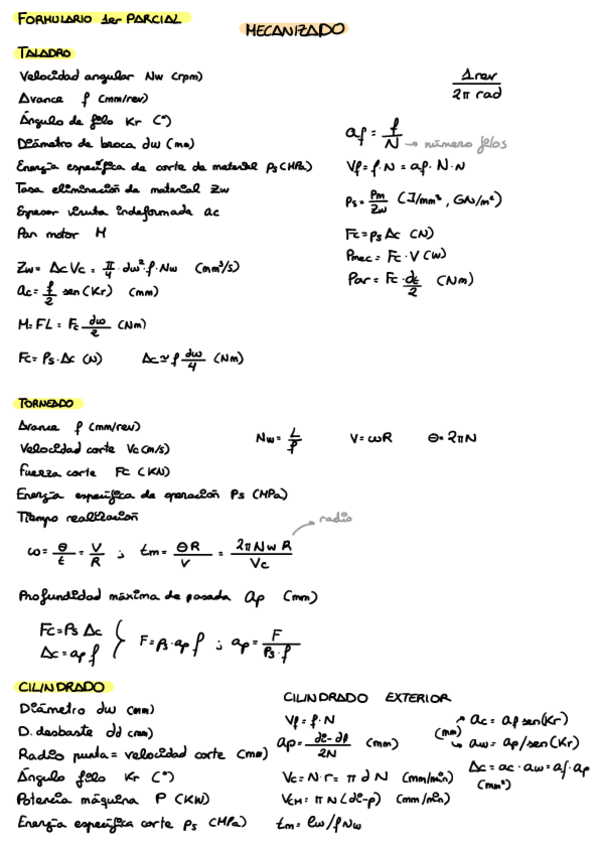 FORMULARIO 1er PARCIAL
MECANIZADO
TALADRO
Velocidad angular Nw (rpm)
Avance f (mm/rev)
Ángulo de filo Kr (°)
Diámetro de broca dw (mm)
Energía específica de corte de material Ps (MPa)
Tasa eliminación de material Zw
Espesor viruta indeformada ac
Par motor M
Zw = Ac Vc = π/4 · dw² · f · Nw (mm³/s)
ac = f/2 sen(Kr) (mm)
M = FL = Fc dw/2 (Nm)
Fc = Ps · Ac (N) Ac ≃ f dw/4 (Nm)
1 rev / 2π rad
af = f/N → número filos
Vf = f · N = af · N · N
Ps = Pm/Zw (J/mm³, GN/m²)
Fc = Ps Ac (N)
Pmec = Fc · V (W)
Par = Fc · dt/2 (Nm)
TORNEADO
Avance f (mm/rev)
Velocidad corte Vc (m/s)
Fuerza corte Fc (KN)
Energía específica de operación Ps (MPa)
Tiempo realización
Nw = L/f V = ωR θ = 2πN
ω = θ/t = V/R ; tm = θR/V = 2π Nw R / Vc → radio
Profundidad máxima de pasada ap (mm)
Fc = Ps Ac
Ac = ap f } F = Ps · ap f ; ap = F / Ps · f
CILINDRADO
Diámetro dw (mm)
D. desbaste dd (mm)
Radio punta = velocidad corte (mm)
Ángulo filo Kr (°)
Potencia máquina P (KW)
Energía específica corte Ps (MPa)
CILINDRADO EXTERIOR
Vf = f · N
ap = di - df / 2N (mm)
Vc = N · r = π d N (mm/min)
VcM = π N (di-p) (mm/min)
tm = lw / f Nw
(mm) ac = af sen(Kr)
aw = ap/sen(Kr)
Ac = ac · aw = af · ap
(mm²)